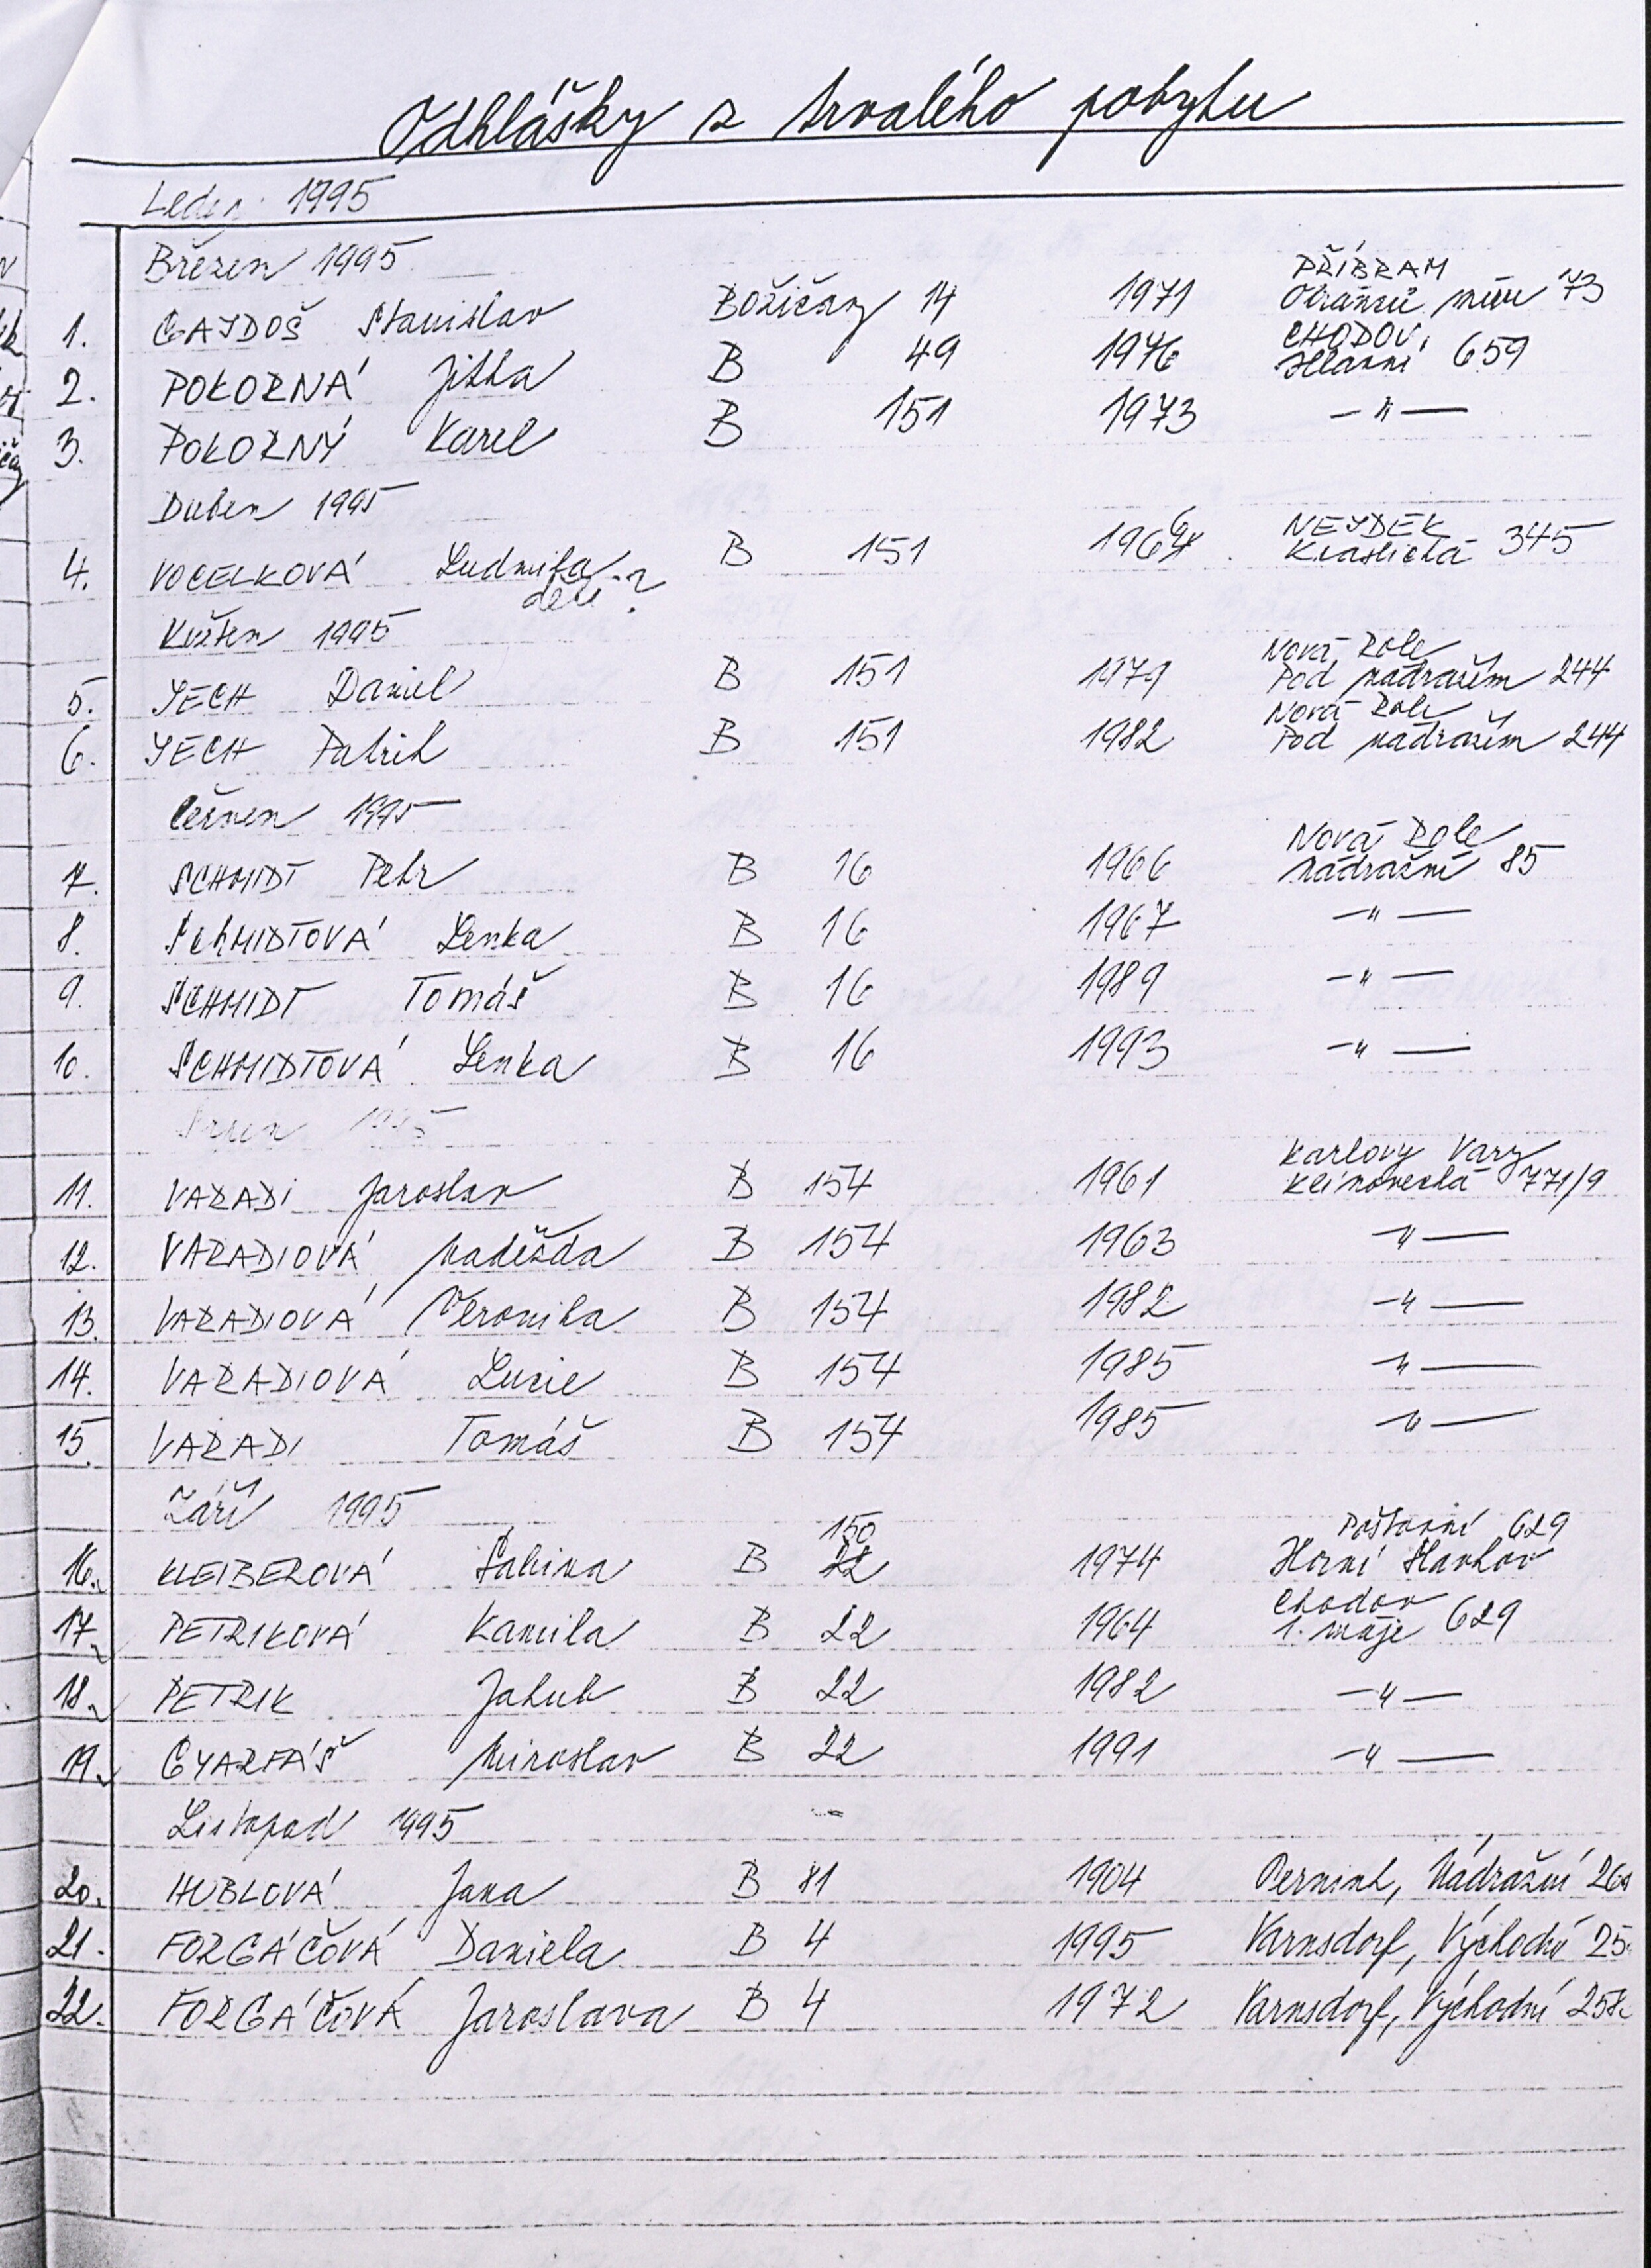 Odhlášky z trvalého pobytu
Leden 1995
Březen 1995
1. GAJDOŠ Stanislav Božičany 14 1971 PŘÍBRAM
Obránců míru 73
2. POKORNÁ Jitka B 49 1976 CHODOV,
Hlavní 659
3. POKORNÝ Karel B 151 1973 — " —
Duben 1995
4. VOCELKOVÁ Ludmila B 151 NEJDEK
děti ? Kraslická 345
Květen 1995
5. JECH Daniel B 151 1979 Nová Role
Pod nádražím 244
6. JECH Patrik B 151 1982 Nová Role
Pod nádražím 244
Červen 1995
7. SCHMIDT Petr B 16 1966 Nová Role
Nádražní 85
8. SCHMIDTOVÁ Lenka B 16 1967 — " —
9. SCHMIDT Tomáš B 16 1989 — " —
10. SCHMIDTOVÁ Lenka B 16 1993 — " —
Srpen 1995
11. VARADI Jaroslav B 154 1961 Karlovy Vary
Klínovecká 771/9
12. VARADIOVÁ Naděžda B 154 1963 " —
13. VARADIOVÁ Veronika B 154 1982 — " —
14. VARADIOVÁ Lucie B 154 1985 " —
15. VARADI Tomáš B 154 1985 " —
Září 1995
150 Poštovní 629
16. KLEIBEROVÁ Sabina B 22 1974 Horní Slavkov
17. PETRIKOVÁ Kamila B 22 1964 Chodov
1. máje 629
18. PETRIK Jakub B 22 1982 — " —
19. GYARFÁŠ Miroslav B 22 1991 — " —
Listopad 1995
20. HUBLOVÁ Jana B 81 1904 Pernink, Nádražní
21. FORGÁČOVÁ Daniela B 4 1995 Varnsdorf, Východní
22. FORGÁČOVÁ Jaroslava B 4 1972 Varnsdorf, Východní